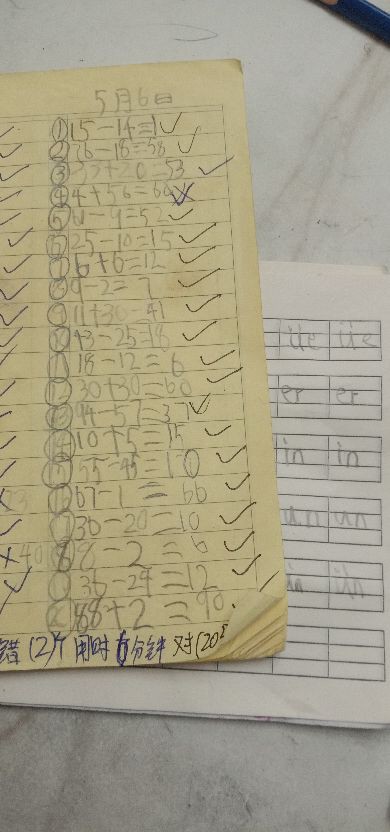 5月6日
①15-14=1✓
②76-18=58✓
③33+20=53✓
④4+56=60
⑤61-9=52✓
⑥25-10=15✓
⑦6+6=12✓
⑧9-2=7✓
⑨11+30=41✓
⑩43-25=18✓
18-12=6✓
30+30=60✓
94-57=37✓
10+5=15✓
55-45=10✓
67-1=66✓
30-20=10✓
8-2=6✓
36-24=12✓
88+2=90
错(2)个 用时6分钟 对(20
üe üe
er er
in in
un un
ün